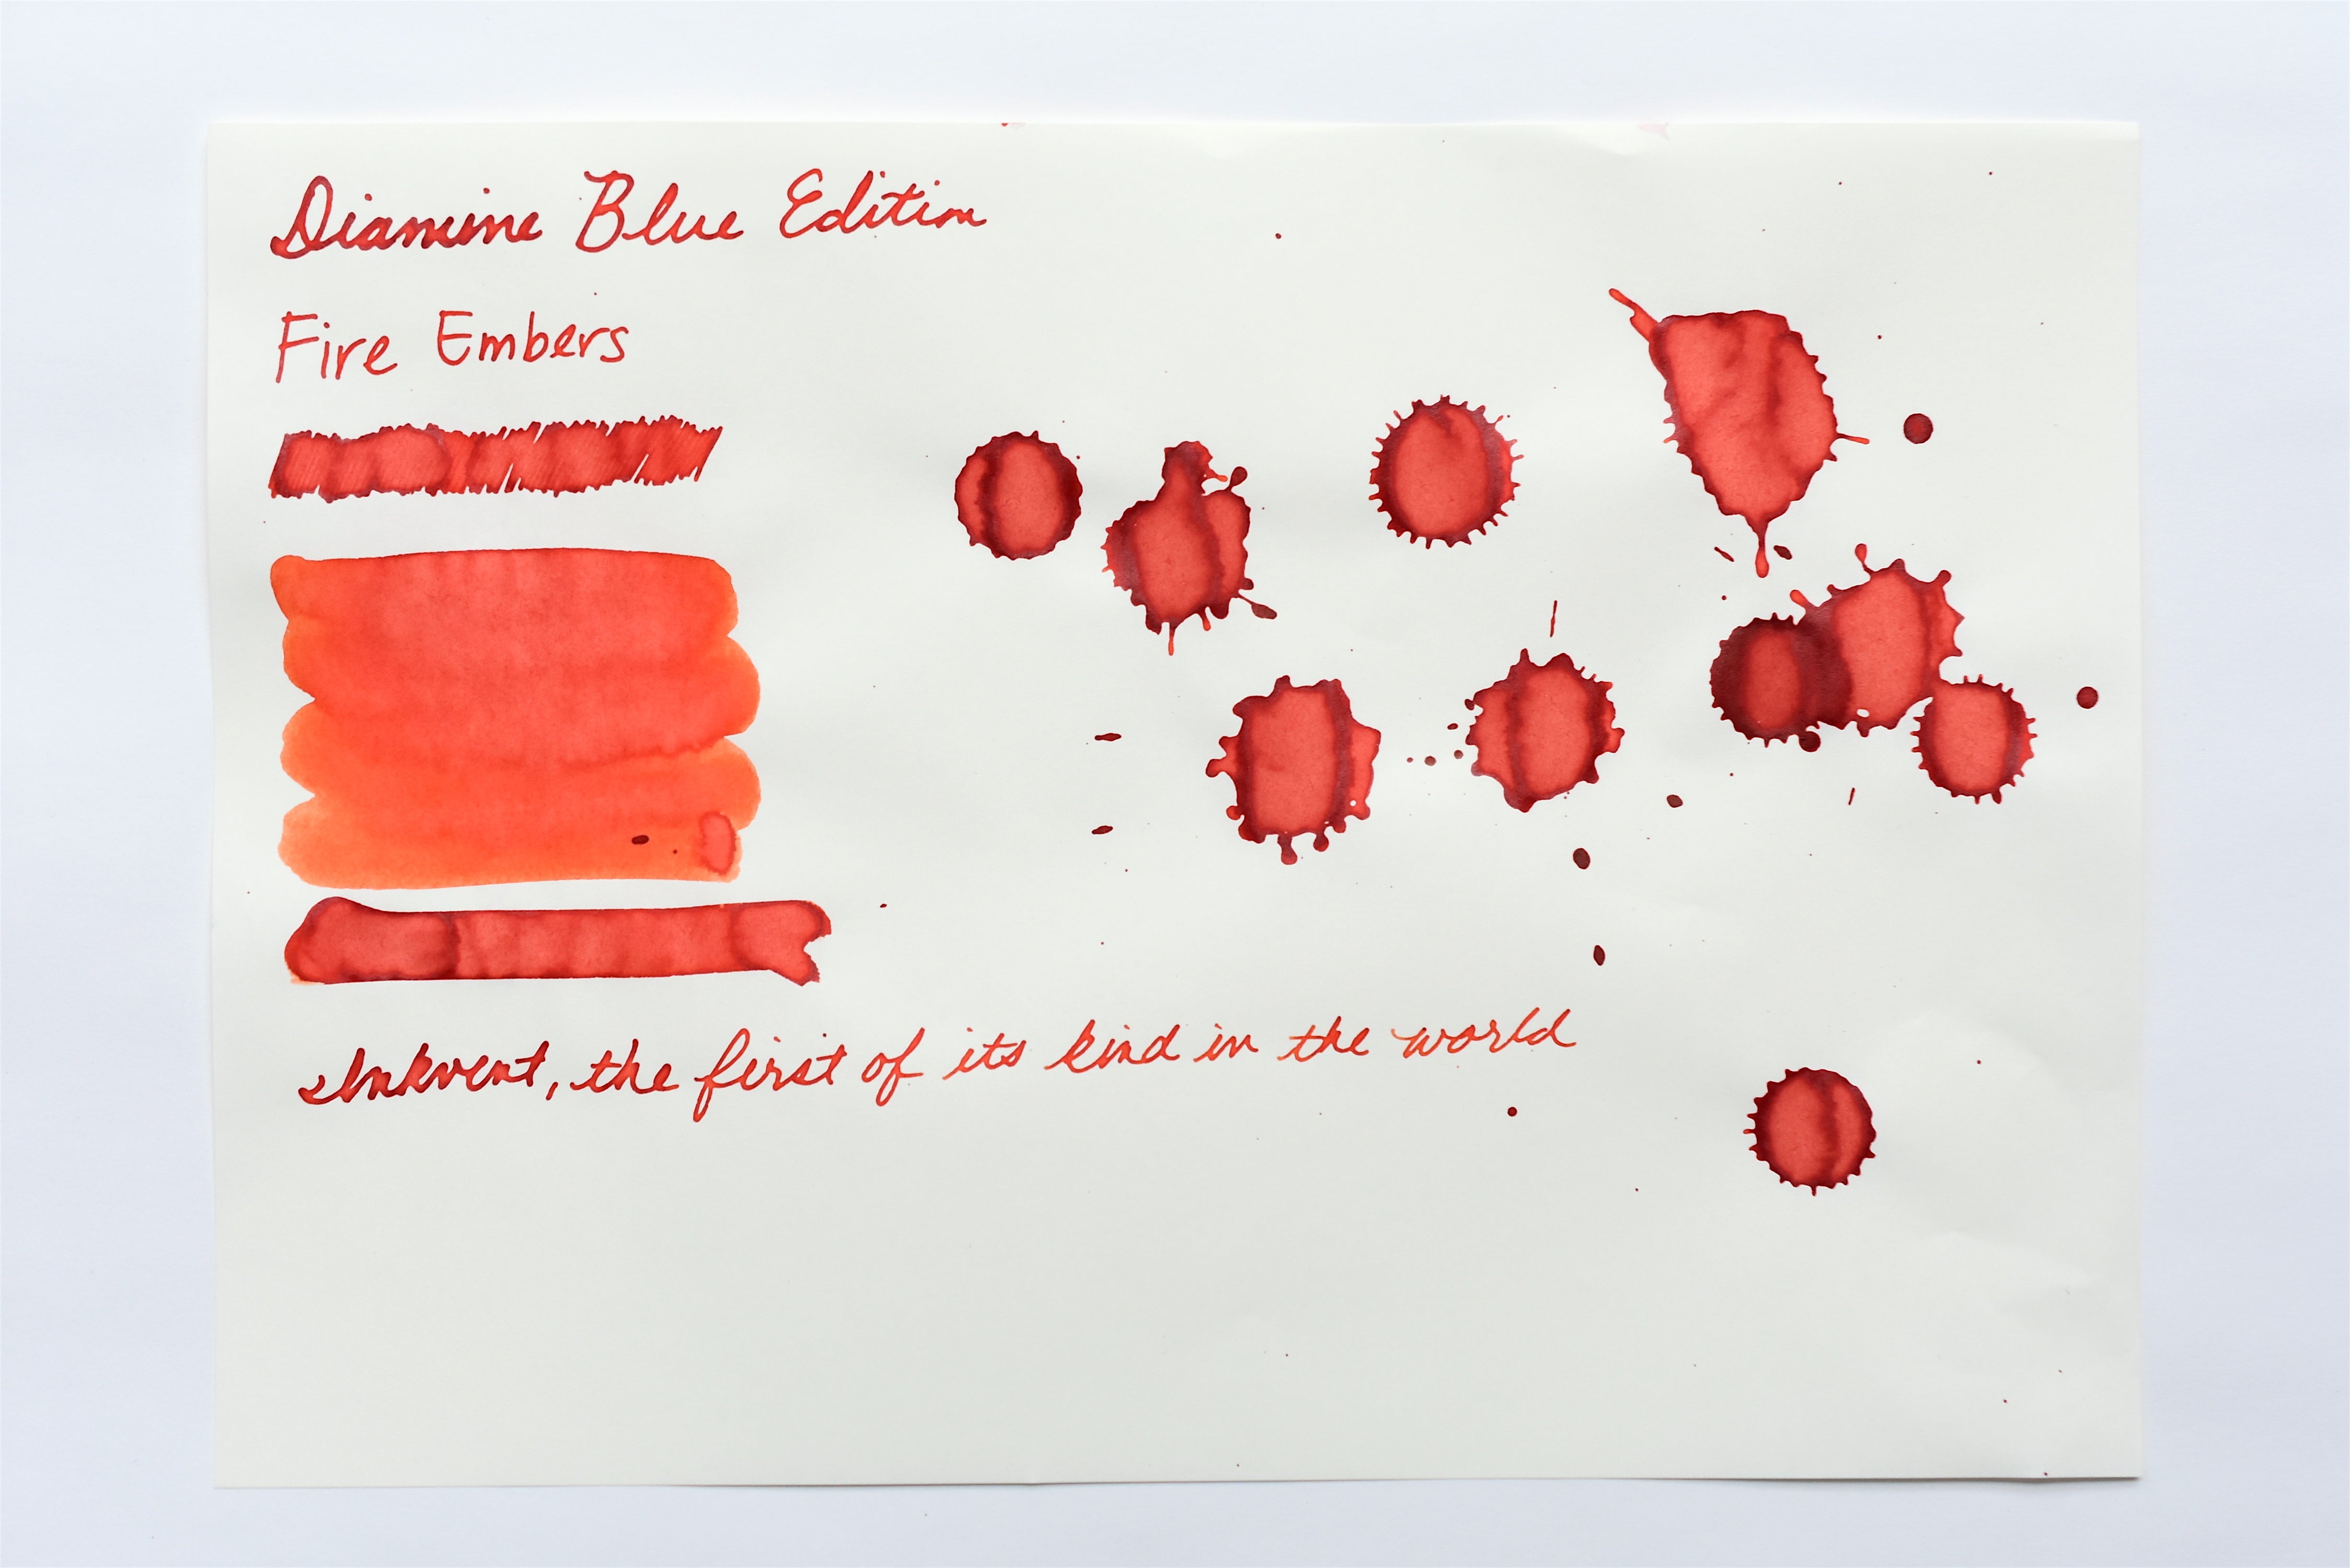 Diamine Blue Edition
Fire Embers
Inkvent, the first of its kind in the world